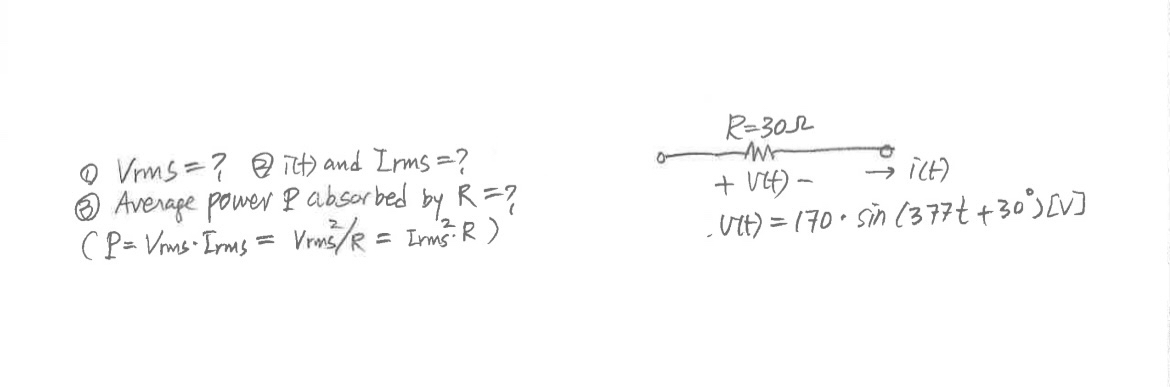 ① Vrms = ? ② i(t) and Irms = ?
③ Average power P absorbed by R = ?
( P = Vrms · Irms = Vrms²/R = Irms² · R )
R=30Ω
+ v(t) - → i(t)
v(t) = 170 · sin (377t + 30°) [V]